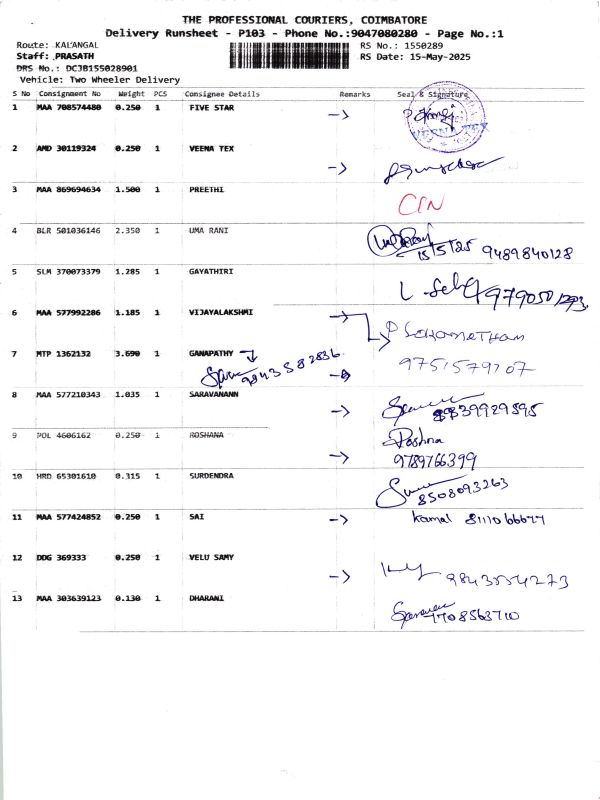 THE PROFESSIONAL COURIERS, COIMBATORE
Delivery Runsheet - P103 - Phone No.:9047080280 - Page No.:1
Route: KALANGAL RS No.: 1550289
Staff: PRASATH RS Date: 15-May-2025
DRS No.: DCJB155028901
Vehicle: Two Wheeler Delivery
S No Consignment No Weight PCS Consignee Details Remarks Seal & Signature
1 MAA 708574480 0.250 1 FIVE STAR
VEENA TEX
2 AMD 30119324 0.250 1 VEENA TEX
3 MAA 869694634 1.500 1 PREETHI CIN
4 BLR 501036146 2.350 1 UMA RANI
15/5/25 9489840128
5 SLM 370073379 1.285 1 GAYATHIRI
6 MAA 577992286 1.185 1 VIJAYALAKSHMI
7 MTP 1362132 3.690 1 GANAPATHY
9843582836
8 MAA 577210343 1.035 1 SARAVANANN
9 POL 4606162 0.250 1 ROSHANA Roshna
9789766399
10 HRD 65301610 0.315 1 SURDENDRA
8508093263
11 MAA 577424852 0.250 1 SAI Kamal
12 DDG 369333 0.250 1 VELU SAMY
13 MAA 303639123 0.130 1 DHARANI